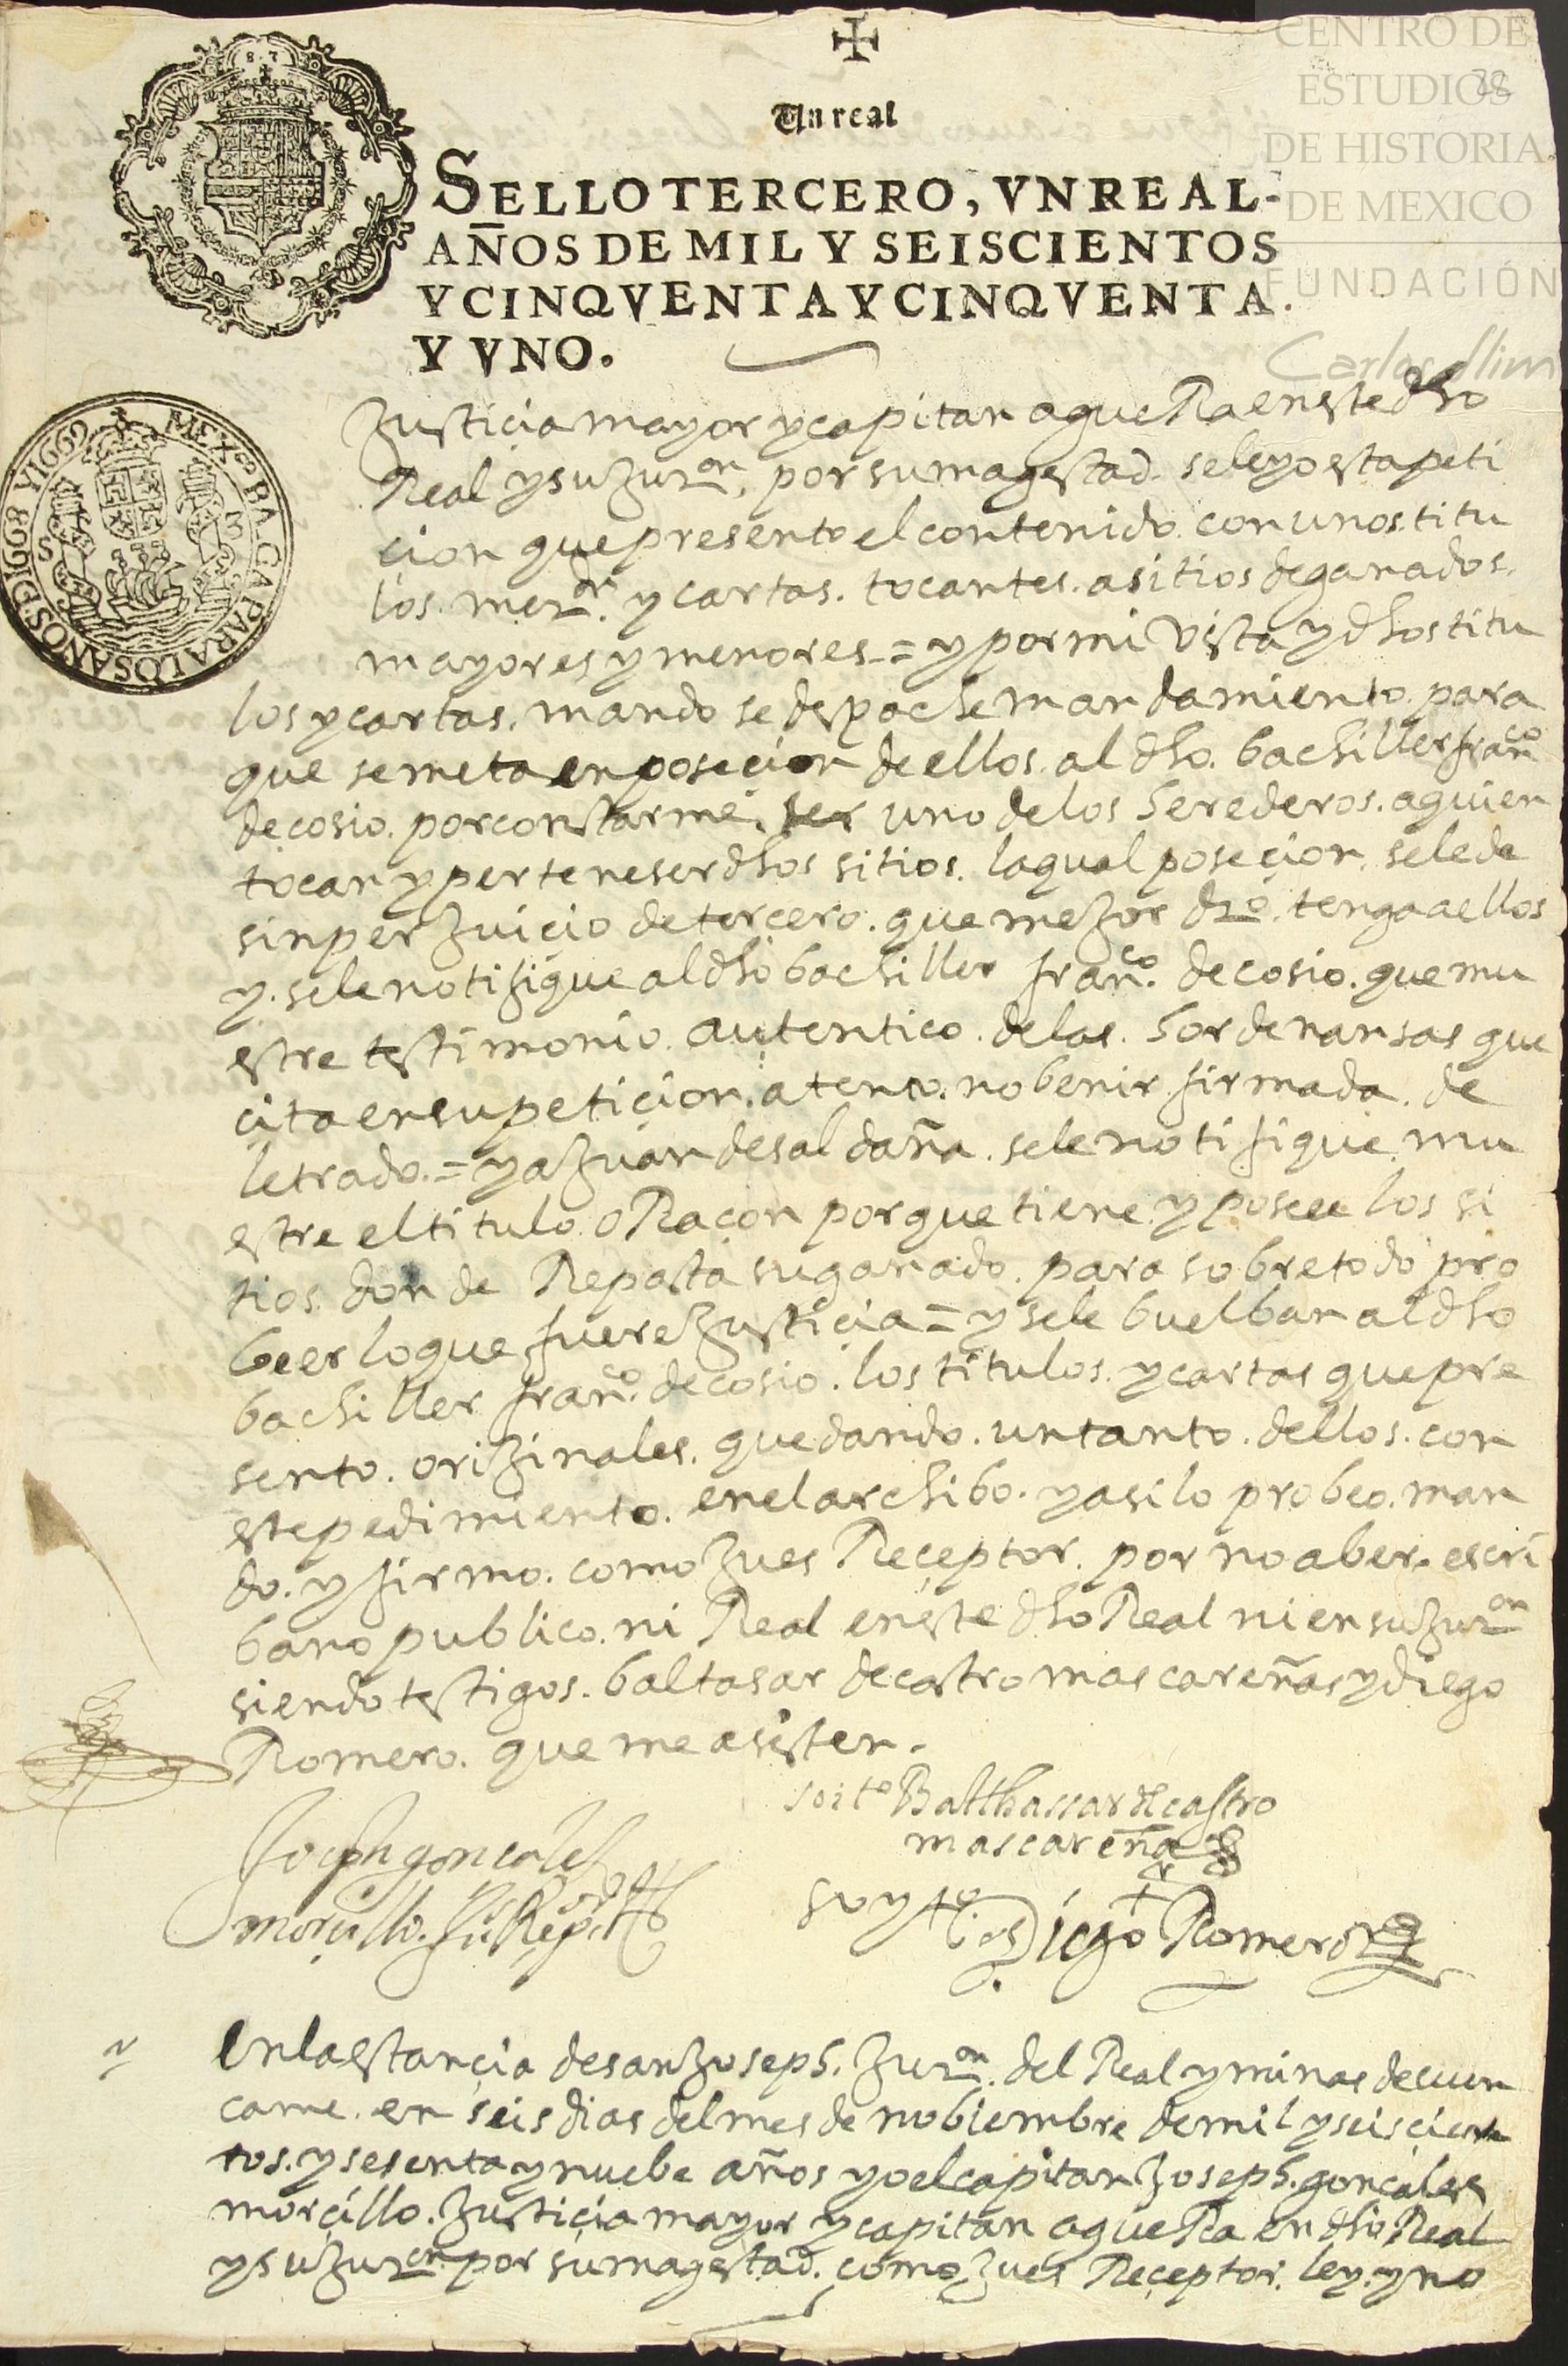 CENTRO DE
ESTUDIOS
DE HISTORIA
DE MEXICO
FUNDACIÓN
Carlos Slim
22
Un real
SELLO TERCERO, VN REAL-
AÑOS DE MIL Y SEISCIENTOS
Y CINQVENTA Y CINQVENTA
Y VNO.
MEXco BA. CA PARA LOS AÑOS D 1668 Y 1669
Justicia mayor y capitan a gueRa en este dho
Real y su Juron, por su magestad. se leyo esta peti
cion que presento el contenido. con unos titu
los. merdn. y cartas. tocantes. a sitios de ganados.
mayores y menores = y por mi Vista y dhos titu
los y cartas. mando se despache mandamiento. para
que se meta en posecion de ellos. al dho. bachiller franco
de cosio. por constarme. ser uno de los herederos. a quien
tocan y perteneser dhos sitios. la qual posecion. se le da
sin perJuicio de tercero. que meJor dro. tenga a ellos
y. se le notifique al dho bachiller franco. de cosio. que mu
estre testimonio. autentico. de las. hordenansas que
cita en su peticion. atento. no benir firmada. de
letrado. = y a Juan de saldaña. se le notifique. mu
estre el titulo o Raçon porque tiene. y posee los si
tios. donde Repasta su ganado. para sobre todo pro
beer lo que fuere Justicia = y se le buelban al dho
bachiller franco. de cosio. los titulos. y cartas que pre
sento. oriJinales. quedando. un tanto. dellos. con
este pedimiento. en el archibo. y asi lo probeo. man
do. y firmo. como Jues Receptor. por no aber. escri
bano publico. ni Real en este dho Real ni en su Juron
siendo testigos. baltasar de castro mascareñas y diego
Romero. que me asisten.
Joseph gonçales
morcillo. Js Repr
soi to Balthassar de castro
mascareña
soy to Diego Romero
En la estancia de san Joseph. Juron. del Real y minas de cuen
came. en seis dias del mes de nobiembre de mil y seiscien
tos. y sesenta y nuebe años yo el capitan Joseph. gonçales
morcillo. Justicia mayor y capitan a gueRa en dho Real
y su Juron por su magestad. como Jues Receptor. ley. y no